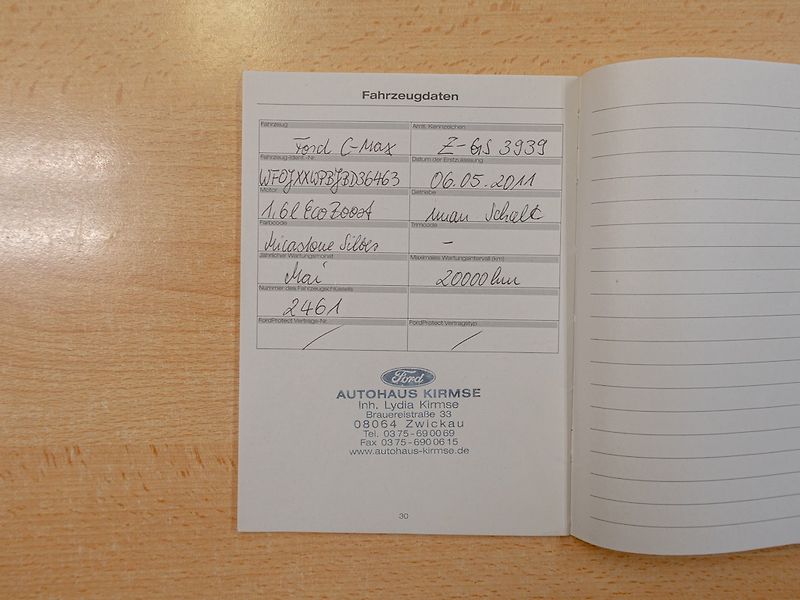 Fahrzeugdaten
Fahrzeug Amtl. Kennzeichen
Ford C-Max Z-GS 3939
Fahrzeug-Ident.-Nr. Datum der Erstzulassung
WF0JXXWPBJBD36463 06.05.2011
Motor Getriebe
1,6l EcoBoost man Schalt
Farbcode Trimcode
Micastone Silber -
Jährlicher Wartungsmonat Maximales Wartungsintervall (km)
Mai 20000 km
Nummer des Fahrzeugschlüssels
2461
FordProtect Vertrags-Nr. FordProtect Vertragstyp
/ /
Ford
AUTOHAUS KIRMSE
Inh. Lydia Kirmse
Brauereistraße 33
08064 Zwickau
Tel. 03 75 - 69 00 69
Fax 03 75 - 690 06 15
www.autohaus-kirmse.de
30